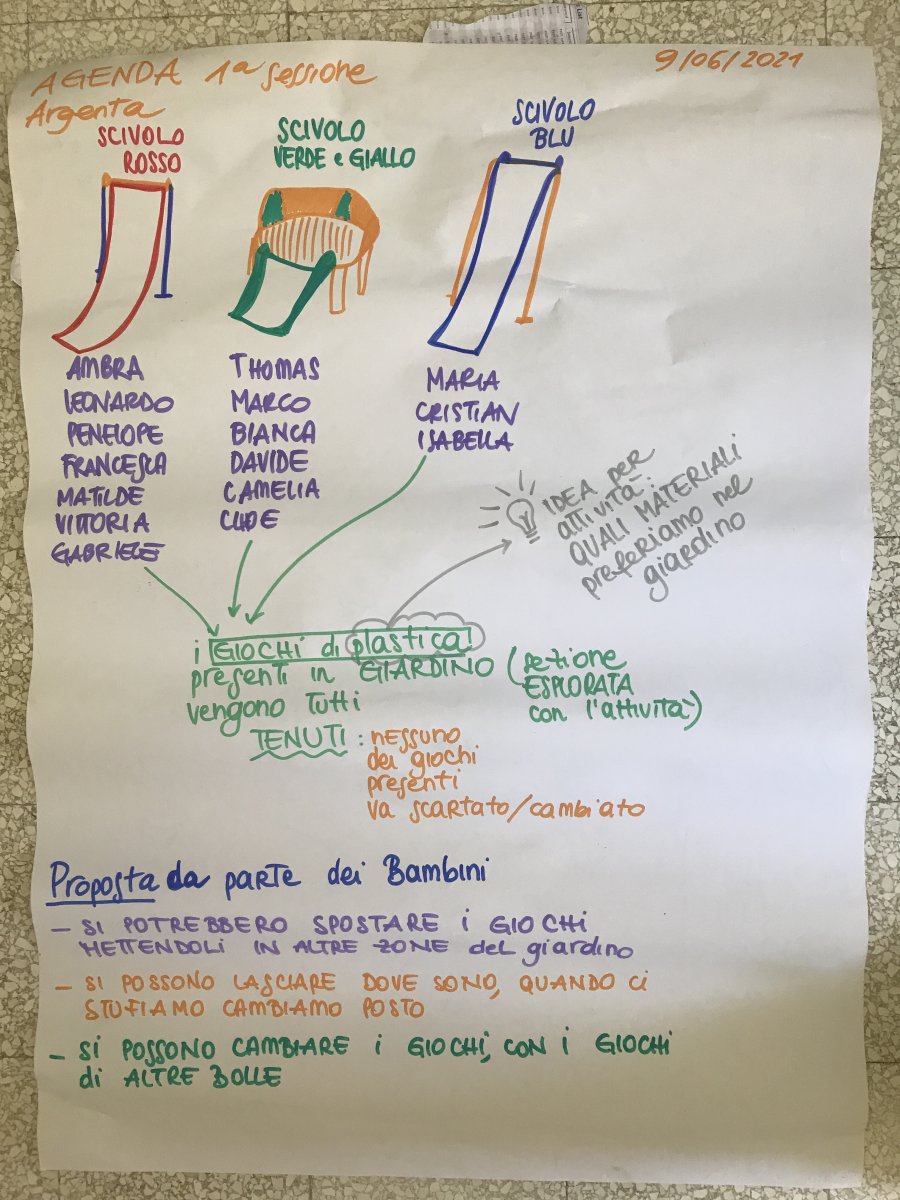 AGENDA 1ª sessione
9/06/2021
Argenta
SCIVOLO
ROSSO
SCIVOLO
VERDE e GIALLO
SCIVOLO
BLU
AMBRA
LEONARDO
PENELOPE
FRANCESCA
MATILDE
VITTORIA
GABRIELE
THOMAS
MARCO
BIANCA
DAVIDE
CAMELIA
MARIA
CRISTIAN
ISABELLA
IDEA per
attività:
QUALI MATERIALI
preferiamo nel
giardino
i GIOCHI di plastica
presenti in GIARDINO
vengono TUTTI
TENUTI:
(sezione
ESPLORATA
con l'attività)
nessuno
dei giochi
presenti
va scartato/cambiato
Proposta da parte dei Bambini
- SI POTREBBERO SPOSTARE i GIOCHI
METTENDOLI IN ALTRE ZONE del giardino
- SI POSSONO LASCIARE DOVE SONO, QUANDO CI
STUFIAMO CAMBIAMO POSTO
- SI POSSONO CAMBIARE i GIOCHI, CON i GIOCHI
di ALTRE BOLLE